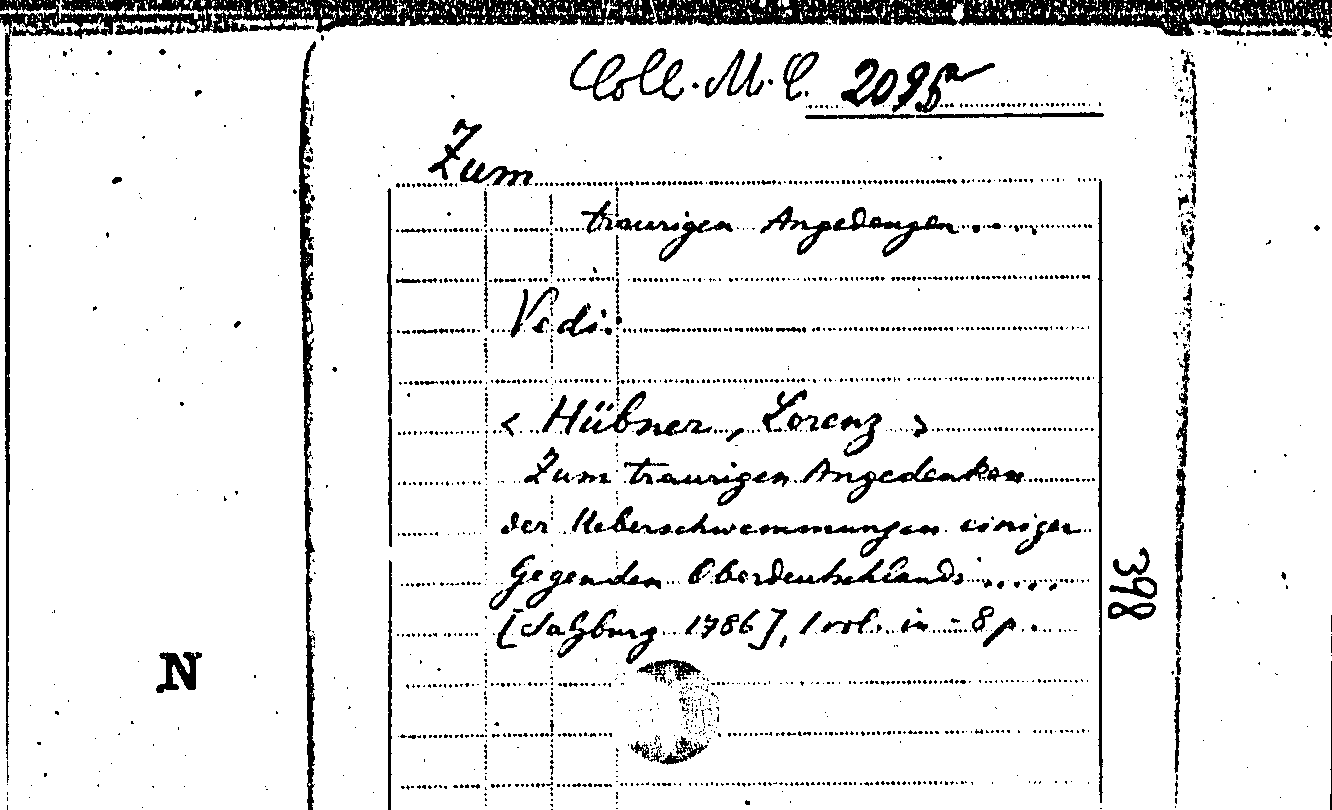 Coll. M. C. 2095
Zum
traurigen Angedengen.....
Vedi:
< Hübner, Lorenz >
Zum traurigen Angedenken
der Ueberschwemmungen einiger
Gegenden Oberdeutschlands.....
[Salzburg 1786], 1 vol. in-8p.
398
N